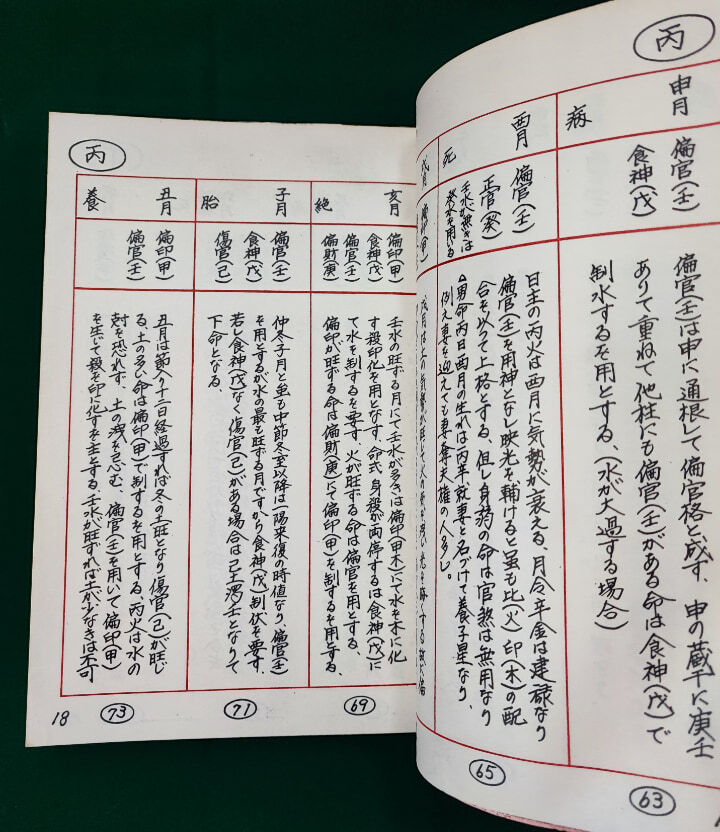 丙
申月
病
偏官(壬)
食神(戊)
偏官(壬)は申に通根して偏官格と成す、申の蔵干に庚壬
ありて重ねて他柱にも偏官(壬)がある命は食神(戊)で
制水するを用とする、(水が大過する場合)
63
酉月
死
偏官(壬)
正官(癸)
壬水が無きは
癸水を用いる
日主の丙火は酉月に気勢が衰える、月令辛金は建禄なり
偏官(壬)を用神となし映光を輔けると虽も比(火)印(木)の配
合を以って上格とする、但し身弱の命は官煞は無用なり
男命丙日酉月の生れは丙辛就妻と名づけて養子星なり、
例え妻を迎えても妻奪夫権の人多し。
65
丙
亥月
絶
偏印(甲)
食神(戊)
偏官(壬)
偏財(庚)
壬水の旺する月にて壬水が多きは偏印(甲木)にて水を木に化
す殺印化を用となす、命式身殺が両停するは食神(戊)に
て水を制するを要す、火が旺する命は偏官を用とする、
偏印が旺する命は偏財(庚)にて偏印(甲)を制するを用とする、
69
子月
胎
偏官(壬)
食神(戊)
傷官(己)
仲冬子月と虽も中節冬至以降は一陽来復の時値なり、偏官(壬)
を用とするが水の最も旺する月ですから食神(戊)制伏を要す、
若し食神(戊)なく傷官(己)がある場合は己土濁壬となりて
下命となる、
71
丑月
養
偏印(甲)
偏官(壬)
丑月は節入り十二日経過すれば冬の土旺となり傷官(己)が旺じ
る、土の多い命は偏印(甲)で制するを用とする、丙火は水の
尅を恐れず、土の洩を忌む、偏官(壬)を用いて偏印(甲)
を生じて殺を印に化すを主とする、壬水が旺ずれば土が少なきは不可
73
18